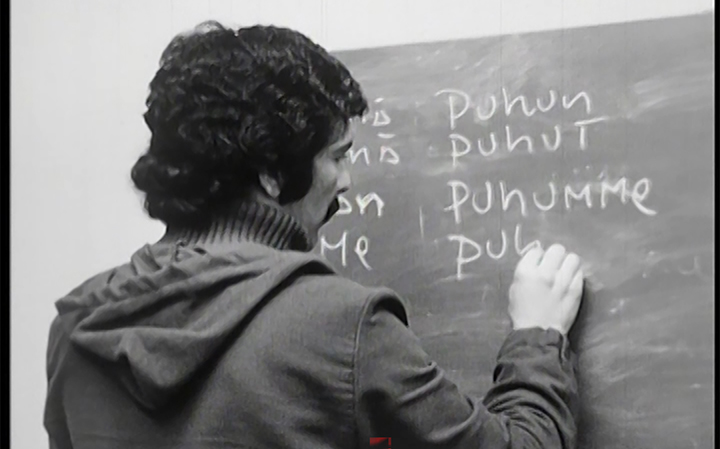 puhun
nä puhuT
puhuMMe
Me puh